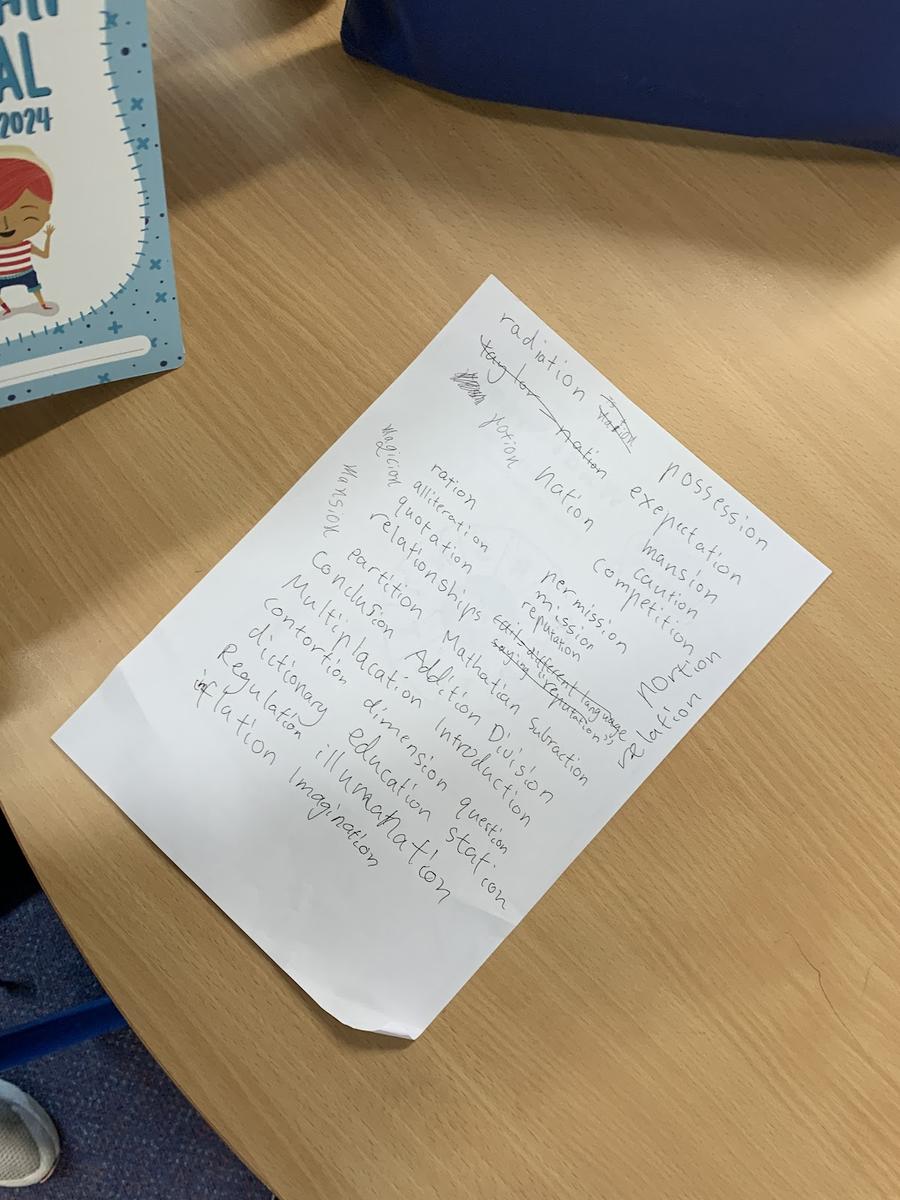 AL
2024
radiation possession
taylor nation exepectation
potion nation mansion
caution
competition
magician
mansion
ration permission
alliteration mission
quotation reputation
relationships
portion
relation
partition Mathatian Subraction
Conclusion Addition Division
Multiplacation Introduction
Contortion dimension question
dictionary education station
Regulation illumanation
inflation Imagination